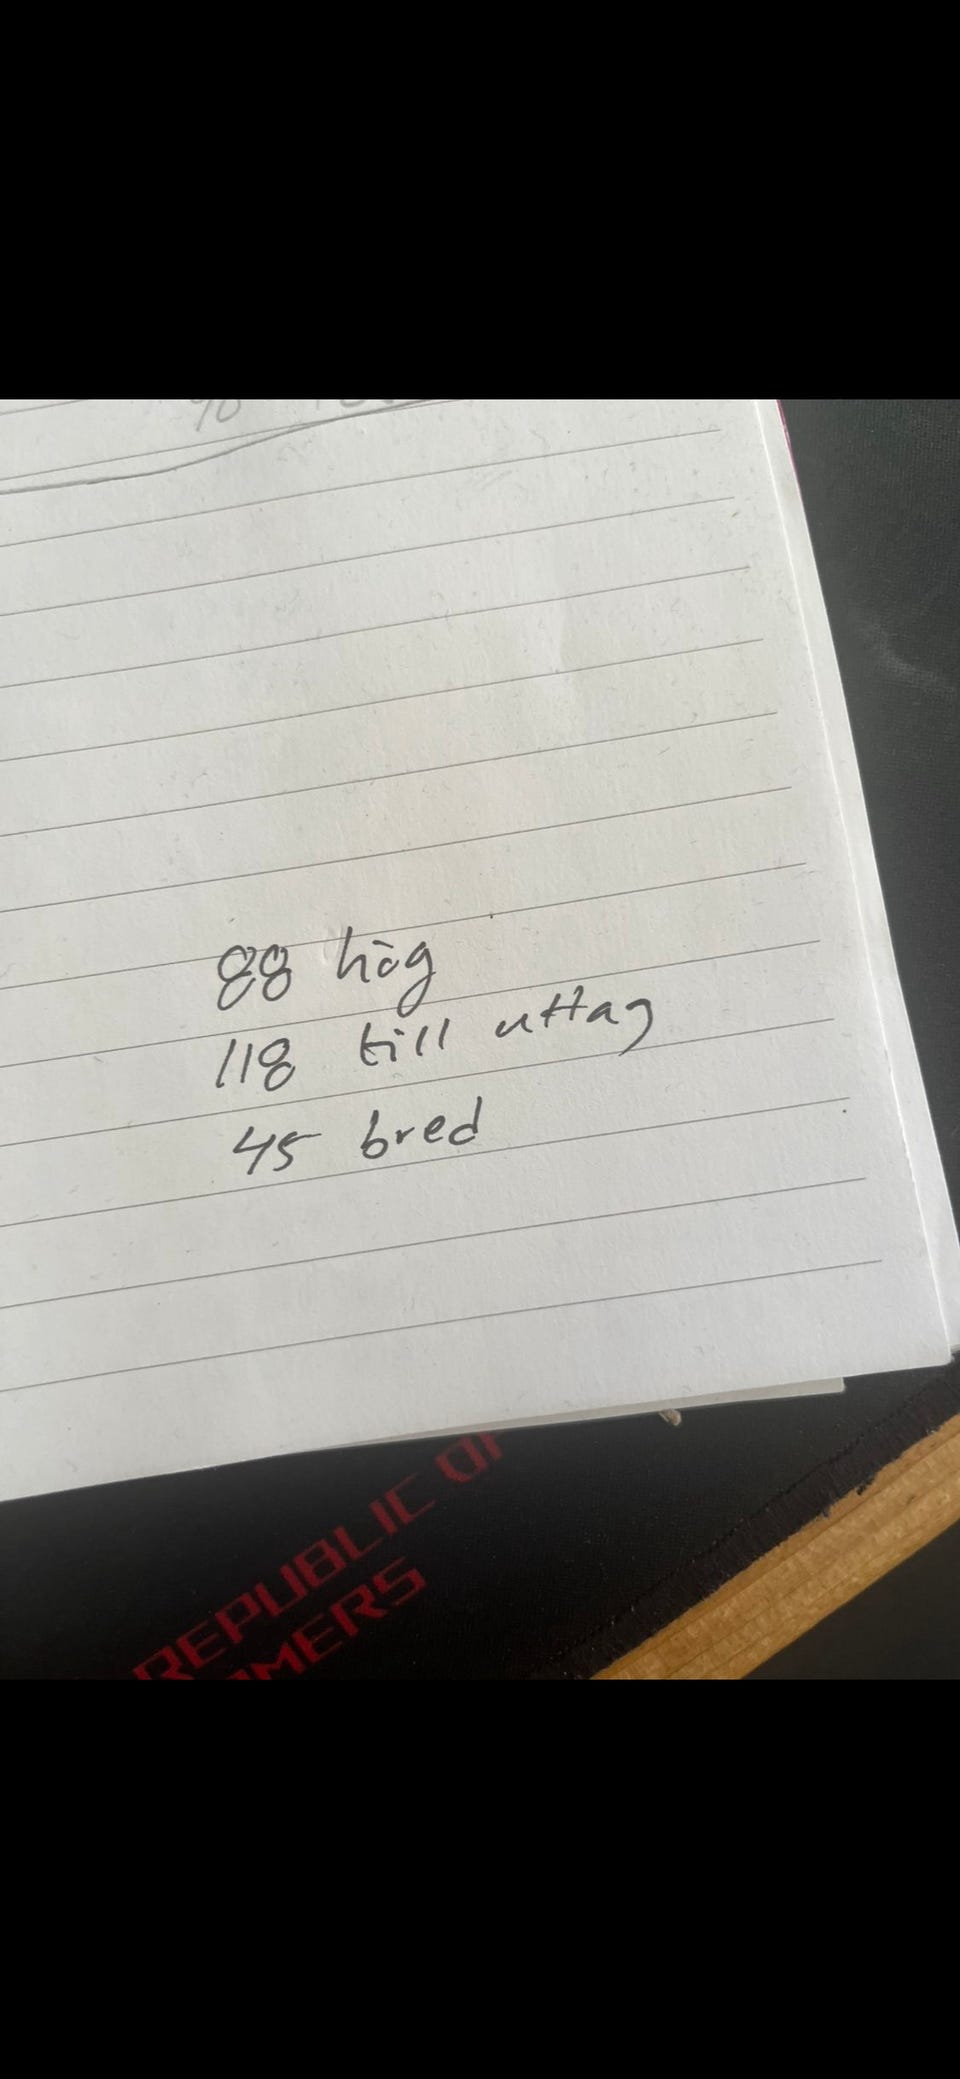 88 hög
118 till uttag
45 bred
REPUBLIC OF